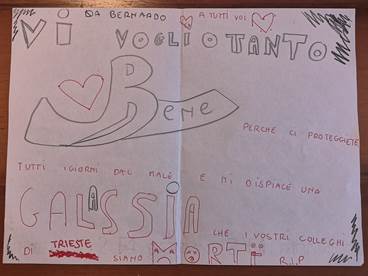 DA BERNARDO A TUTTI VOI
VI VOGLIO TANTO
BENE
PERCHE CI PROTEGGIETE
TUTTI I GIORNI DAL MALE E MI DISPIACE UNA
GALASSIA
CHE I VOSTRI COLLEGHI
DI TRIESTE SIANO MORTI R.I.P